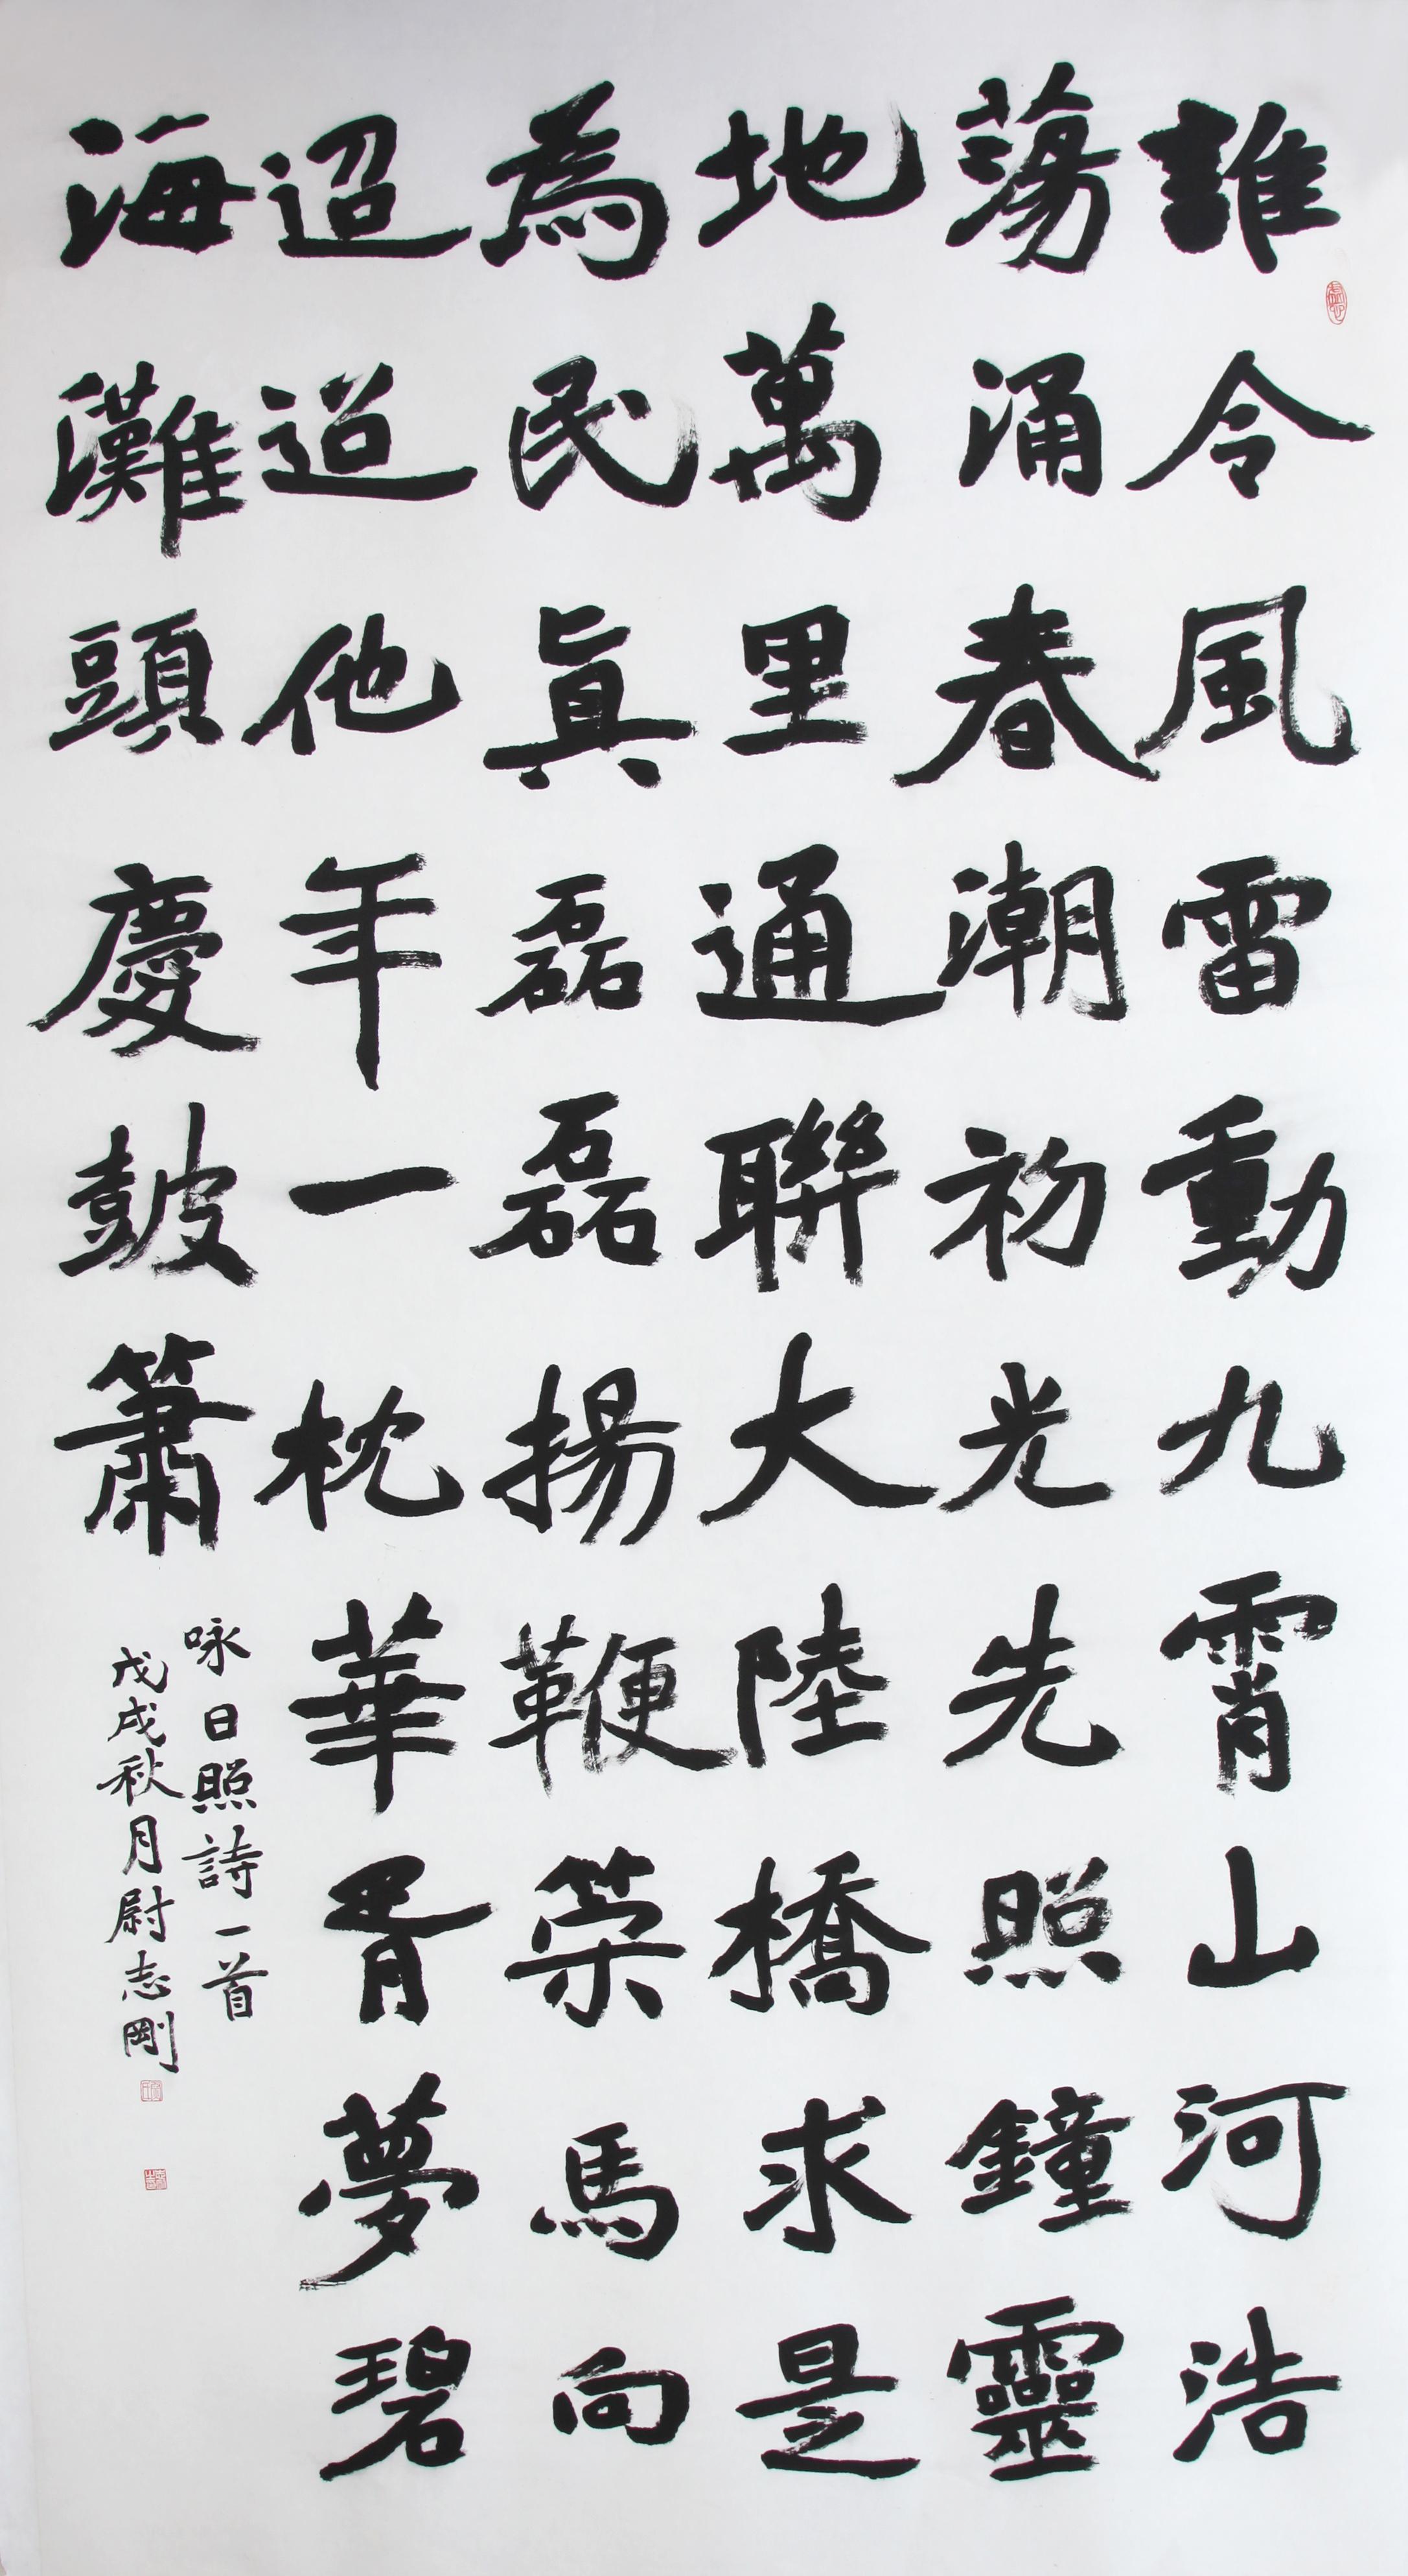 誰令風雷動九霄山河浩
蕩涌春潮初光先照鐘靈
地萬里通聯大陸橋求是
為民真磊磊揚鞭策馬向
迢迢他年一枕華胥夢碧
海灘頭慶鼓簫
咏日照詩一首
戊戌秋月尉志剛